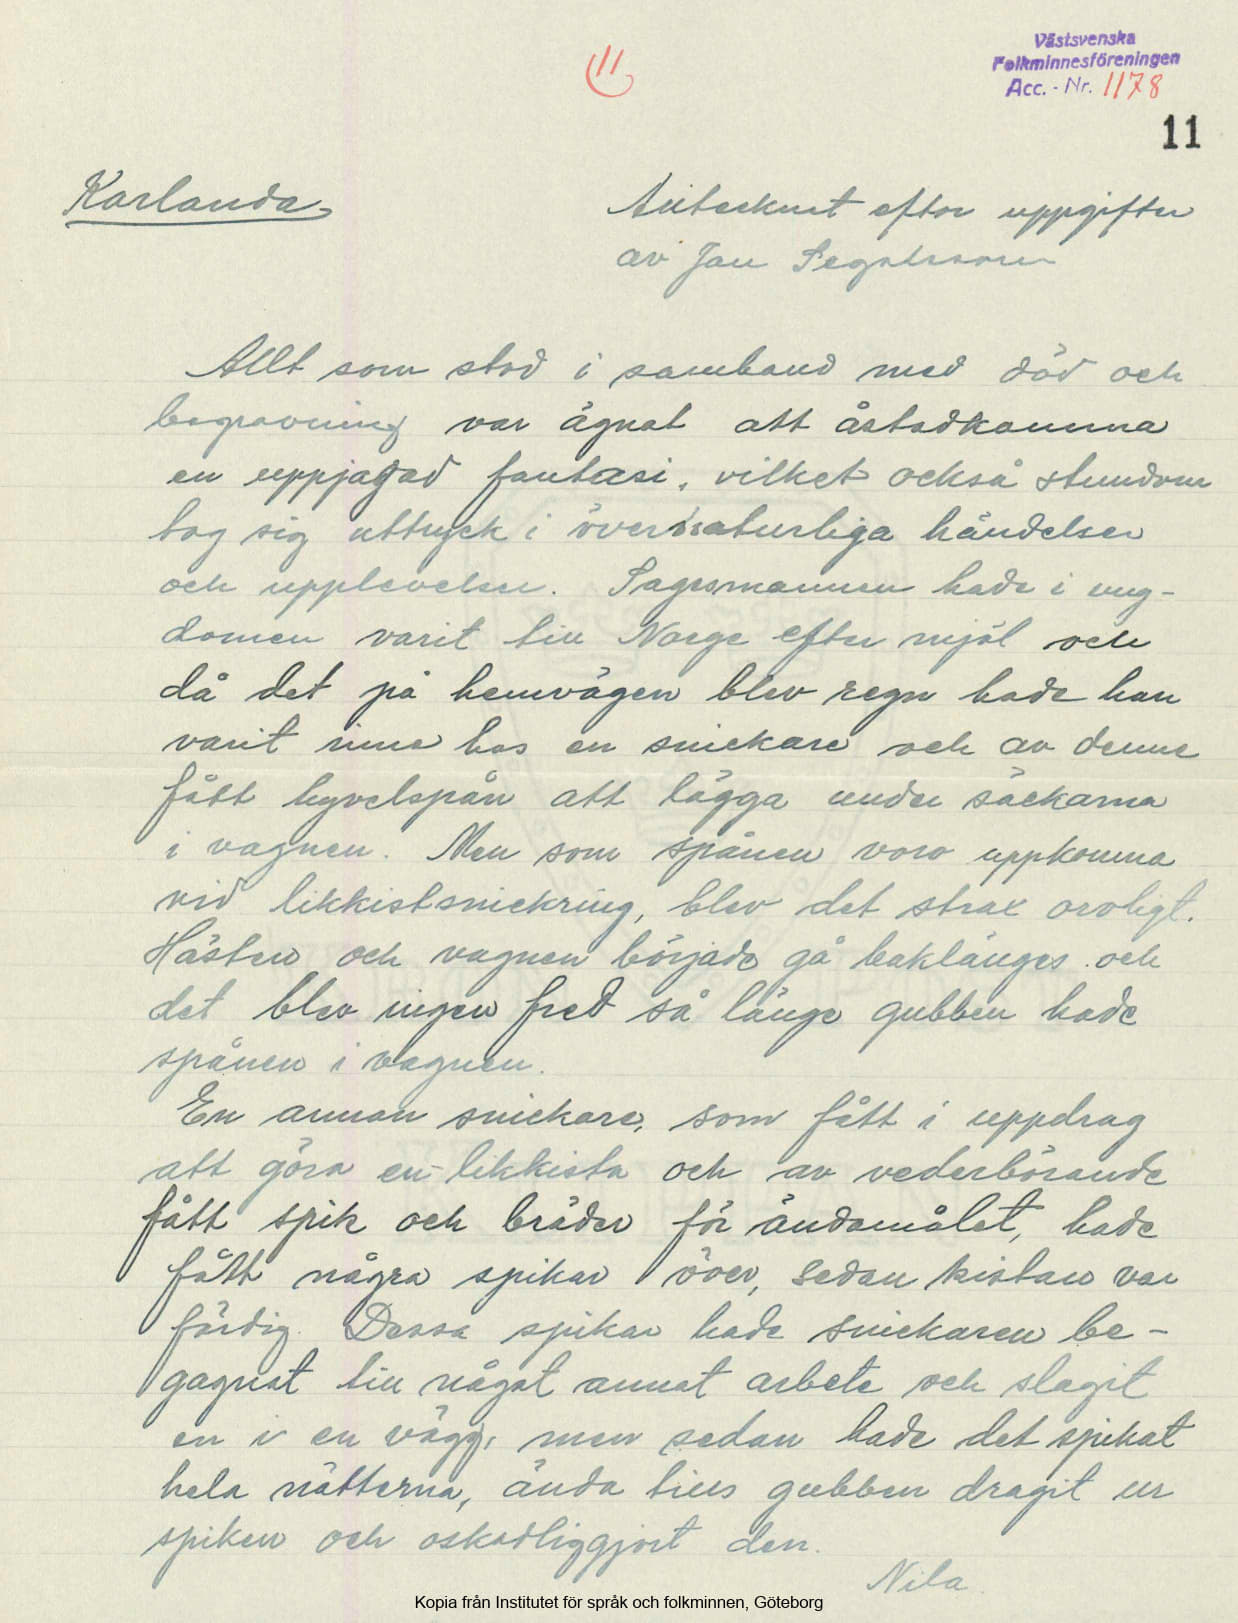 Västsvenska
Folkminnesföreningen
Acc. - Nr. 1178
11
11
Karlanda
Antecknat efter uppgifter
av Jan
Allt som stod i samband med död och
begravning var ägnat att åstadkomma
en uppjagad fantasi, vilket också stundom
tog sig uttryck i övernaturliga händelser
och upplevelser. Sagesmannen hade i ung-
domen varit till Norge efter mjöl och
då det på hemvägen blev regn hade han
varit inne hos en snickare och av denne
fått hyvelspån att lägga under säckarna
i vagnen. Men som spånen voro uppkomna
vid likkistsnickring, blev det strax oroligt.
Hästen och vagnen började gå baklänges och
det blev ingen fred så länge gubben hade
spånen i vagnen.
En annan snickare, som fått i uppdrag
att göra en likkista och av vederbörande
fått spik och bräder för ändamålet, hade
fått några spikar över, sedan kistan var
färdig. Dessa spikar hade snickaren be-
gagnat till något annat arbete och slagit
en i en vägg, men sedan hade det spikat
hela nätterna, ända tills gubben dragit ur
spiken och oskadliggjort den.
Nila.
Kopia från Institutet för språk och folkminnen, Göteborg